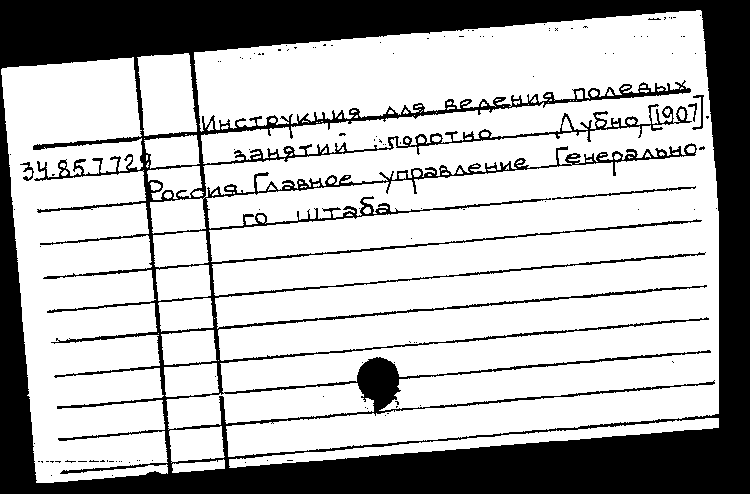 Инструкция для ведения полевых
занятий поротно. Дубно, [1907].
34.85.7.729
Россия. Главное управление Генерально-
го штаба.